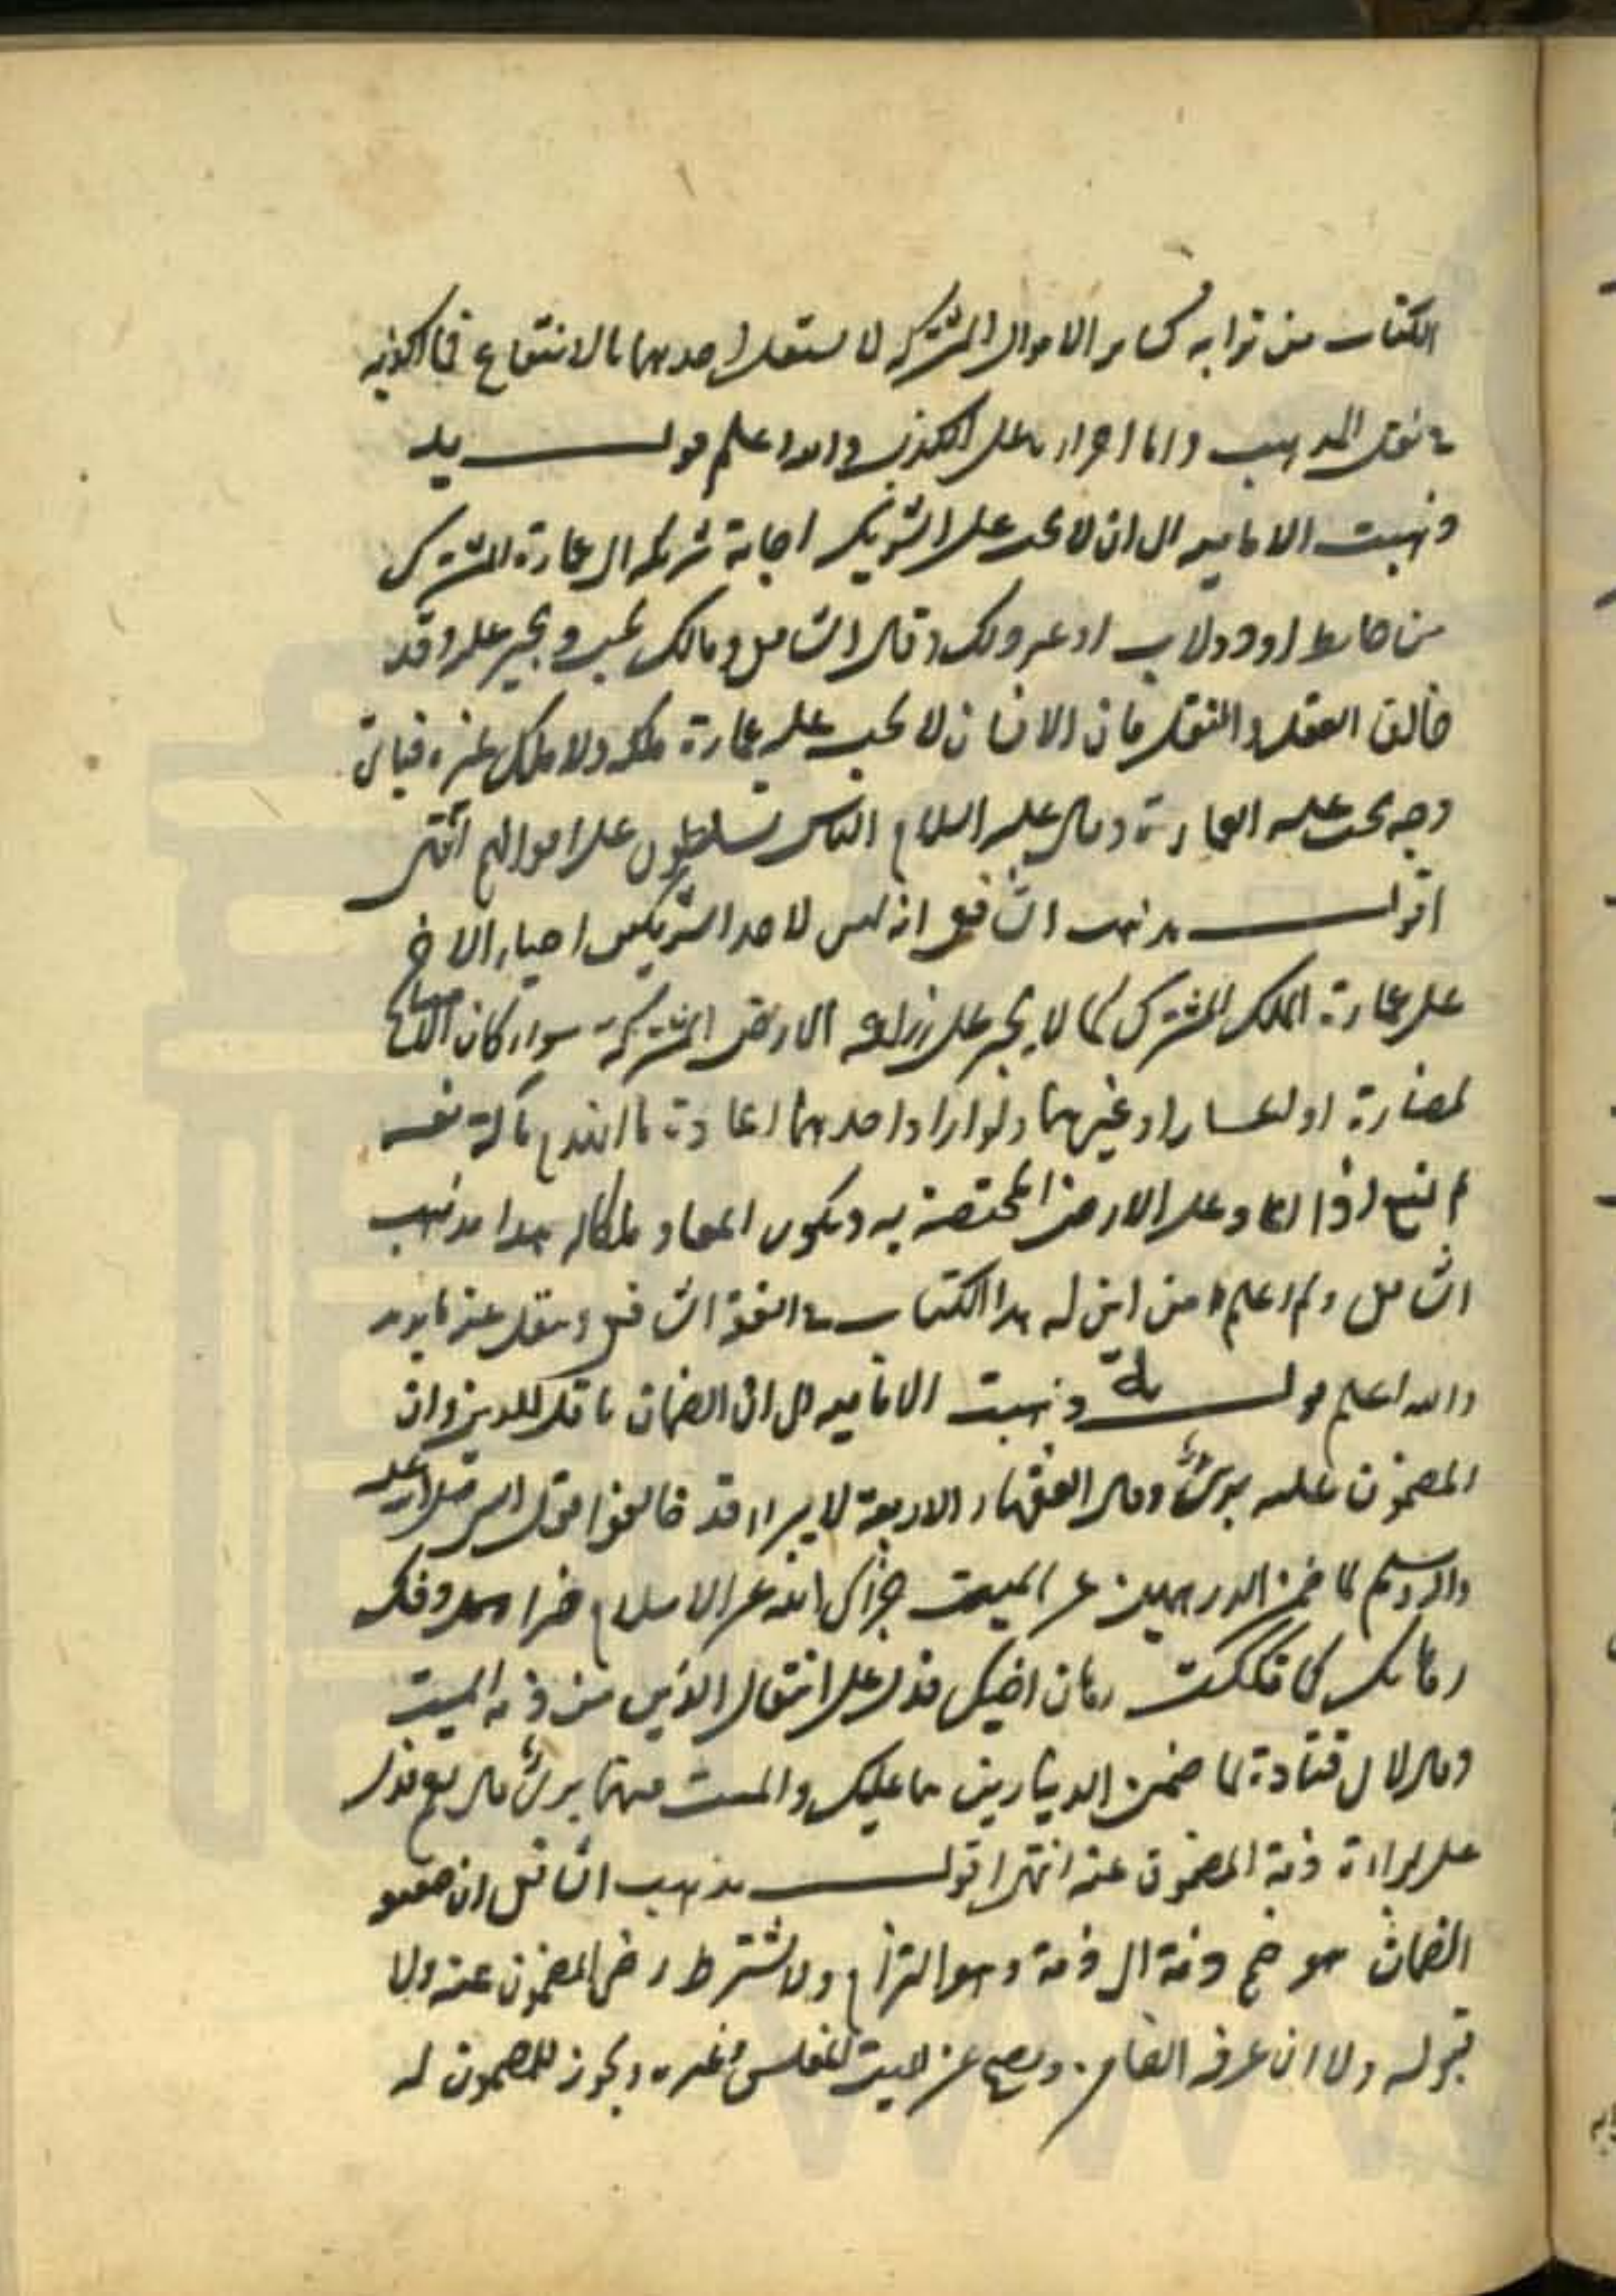 الكتاب من ترابه كسائر الاموال المشتركه لا يستقل احدهما بالانتفاع فما اكذبه
في نقل المذهب وما اجراه على الكذب والله اعلم قوله يد
ذهبت الاماميه الى ان لا يجب على الشريك اجابة شريكه الى عمارة المشترك
من حائط او دولاب او غير ذلك وقال الشافعي ومالك يجب ويجبر عليه وقد
خالفا العقل والنقل فان الانسان لا يجب عليه عمارة ملكه ولا ملك غيره فباي
وجه يجب عليه العمارة وقال عليه السلام الناس مسلطون على اموالهم انتهى
اقول مذهب الشافعي انه ليس لاحد الشريكين اجبار الاخر
على عمارة الملك المشترك كما لا يجبر على زراعة الارض المشتركة سواء كان الامتناع
لمضارة او لاعسار او غيرهما ولو اراد احدهما اعادة ما انهدم بآلة نفسه
لم يمنع اذا اعاد على الارض المختصة به ويكون المعاد ملكا له هذا مذهب
الشافعي ولم اعلم من اين له هذا الكتاب في الفقه الشافعي وينقل عنه ما يريد
والله اعلم قوله يه ذهبت الاماميه الى ان الضمان ناقل للدين وان
المضمون عليه برئ وقال الفقهاء الاربعة لا يبرا وقد خالفوا قول النبي صلى الله عليه
واله وسلم لما ضمن الدرهمين عن الميت جزاك الله عن الاسلام خيرا وفك
رهانك كما فككت رهان اخيك فدل على انتقال الدين من ذمة الميت
وقال لابي قتادة لما ضمن الدينارين هما عليك والميت منهما برئ قال نعم فدل
على براءة ذمة المضمون عنه انتهى اقول مذهب الشافعي ان حقيقة
الضمان هو ضم ذمة الى ذمة وهو التزام ولا يشترط رضى المضمون عنه ولا
قبوله ولا ان عرفه الضامن ويصح عن الميت المفلس وغيره ويجوز للمضمون له